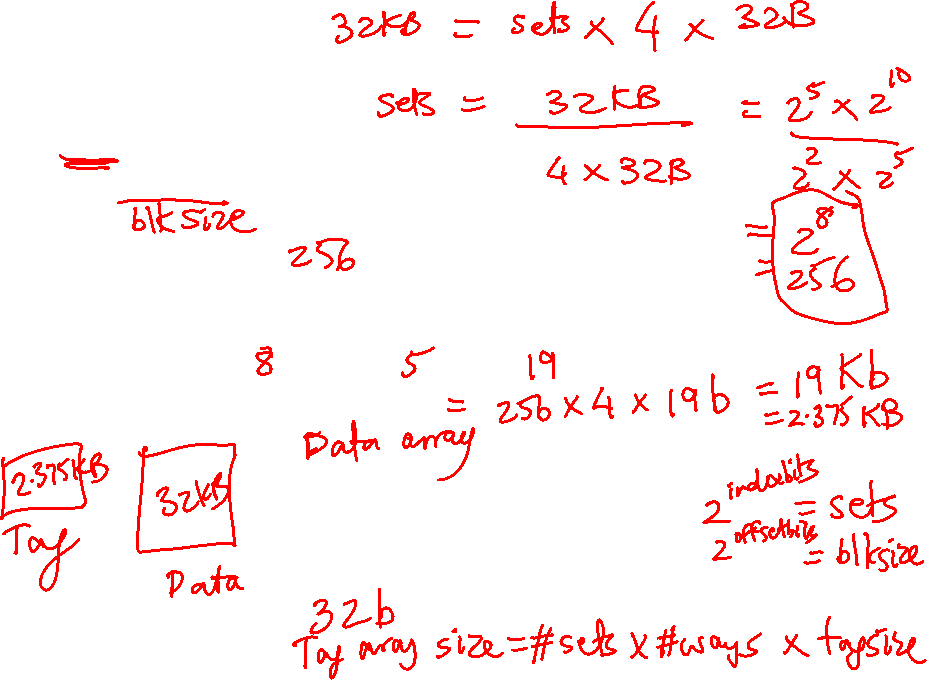 32KB = sets x 4 x 32B
sets = 32KB / 4 x 32B = 2^5 x 2^10 / 2^2 x 2^5
= 2^8
= 256
blk size
256
8 5 19
= 256 x 4 x 19b = 19 Kb
= 2.375 KB
Data array
2.375KB
Tag
32KB
Data
2^indexbits = sets
2^offsetbits = blksize
32b
Tag array size = #sets x #ways x tagsize